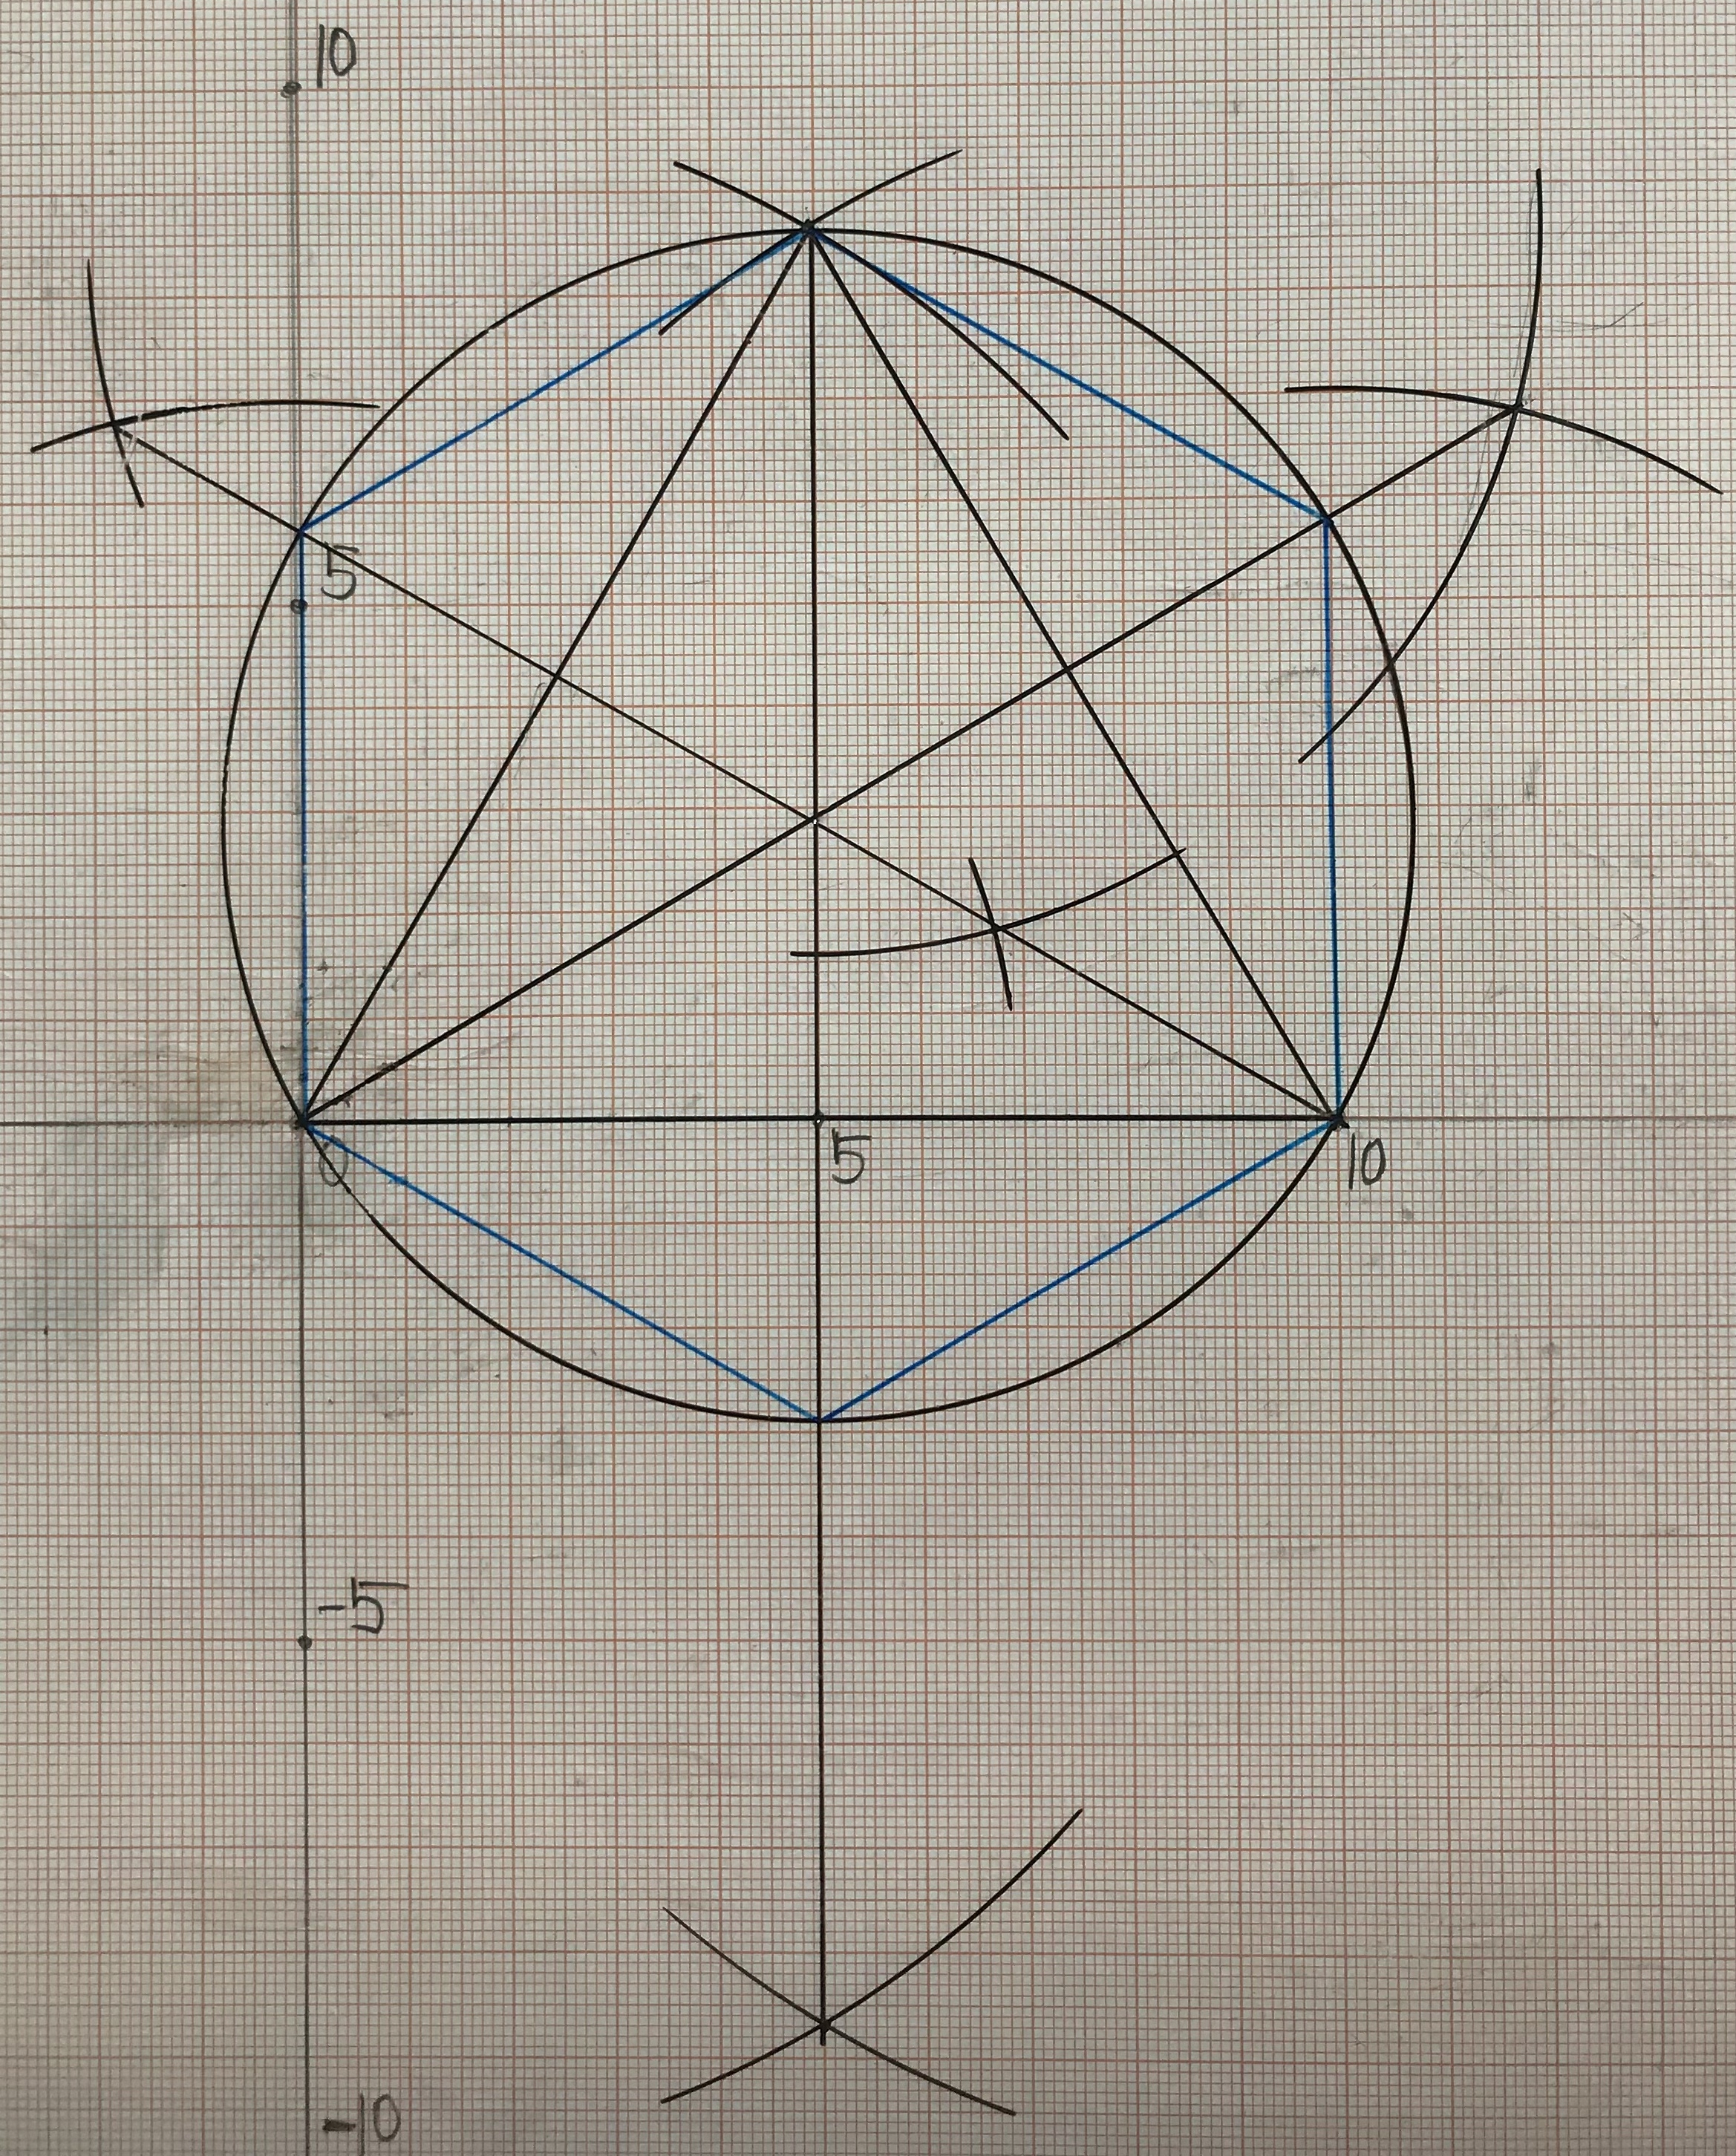 10
5
0 5 10
-5
-10